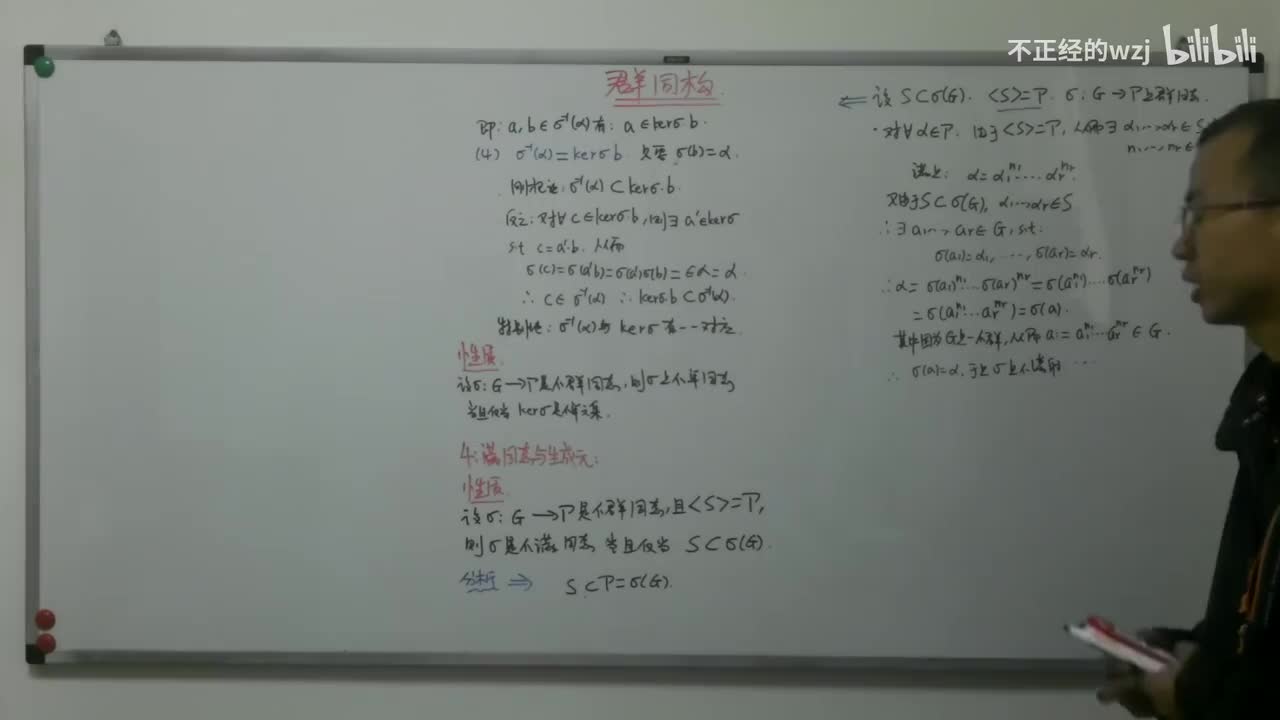 不正经的wzj bilibili
群同构
即: a,b∈σ⁻¹(α)有: a∈kerσ b.
(4) σ⁻¹(α)=kerσ b 只要 σ(b)=α.
则根据: σ⁻¹(α)⊂kerσ·b.
反之: 对∀c∈kerσ b, 则∃a'∈kerσ
st c=a'·b. 从而
σ(c)=σ(a'b)=σ(a')σ(b)=εα=α.
∴ c∈σ⁻¹(α) ∴ kerσ b⊂σ⁻¹(α).
特别地: σ⁻¹(α)与kerσ有一一对应.
性质.
设σ: G→P是个群同态, 则σ是个单同态
当且仅当 kerσ是单元集.
4: 满同态与生成元:
性质.
设σ: G→P是个群同态, 且<S>=P,
则σ是个满同态 当且仅当 S⊂σ(G).
分析 ⇒ S⊂P=σ(G).
⇐ 设 S⊂σ(G). <S>=P. σ: G→P是群同态.
·对∀α∈P. 由于<S>=P, 从而∃α₁,…,αr∈S
n₁,…,nr∈
满足: α=α₁ⁿ¹…αrⁿʳ.
又由于S⊂σ(G), α₁,…,αr∈S
∴∃a₁,…,ar∈G, s.t.
σ(a₁)=α₁, …, σ(ar)=αr.
∴α=σ(a₁)ⁿ¹…σ(ar)ⁿʳ=σ(a₁ⁿ¹)…σ(arⁿʳ)
=σ(a₁ⁿ¹…arⁿʳ)=σ(a).
其中因为G是一个群, 从而a:=a₁ⁿ¹…arⁿʳ∈G.
∴ σ(a)=α. 于是σ是个满的…